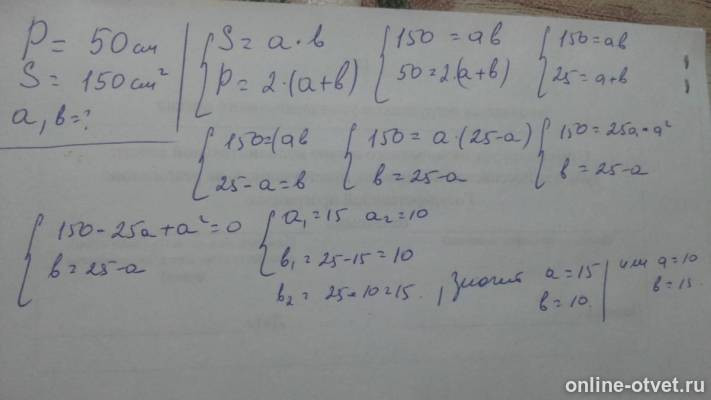 P = 50 см
S = 150 см²
a, b = ?
S = a · b
P = 2 · (a + b)
150 = ab
50 = 2(a + b)
150 = ab
25 = a + b
150 = (ab
25 - a = b
150 = a · (25 - a)
b = 25 - a
150 = 25a - a²
b = 25 - a
150 - 25a + a² = 0
b = 25 - a
a₁ = 15 a₂ = 10
b₁ = 25 - 15 = 10
b₂ = 25 - 10 = 15. , Значит a = 15
b = 10.
или a = 10
b = 15.
online-otvet.ru